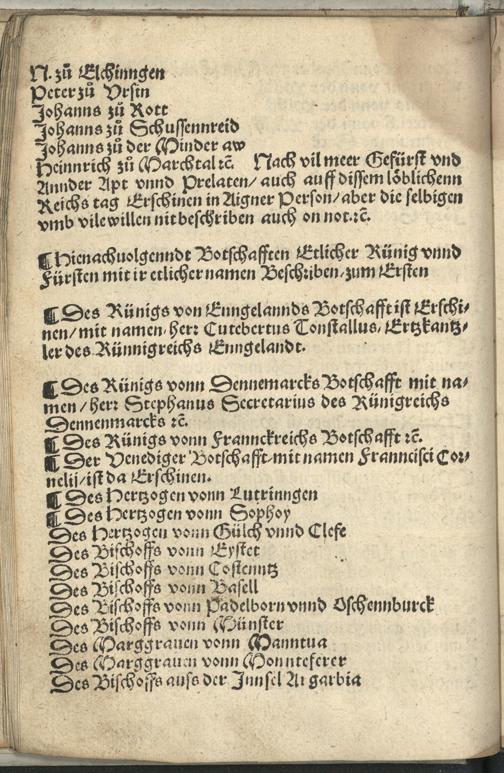 N. zů Elchinngen
Peter zů Vrsin
Johanns zů Rott
Johanns zů Schussennreid
Johanns zů der Minder aw
Heinnrich zů Marchtal ꝛc̃. Nach vil meer Gefürst vnd
Annder Apt vnnd Prelaten/ auch auff dissem löblichenn
Reichs tag Erschinen in Aigner Person/ aber die selbigen
vmb vile willen nit beschriben auch on not. ꝛc̃.
¶ Hienachuolgenndt Botschafften Etlicher Künig vnnd
Fürsten mit ir etlicher namen Beschriben/ zum Ersten
¶ Des Künigs von Enngelannds Botschafft ist Erschi-
nen/ mit namen/ herr Cutebertus Tonstallus, Ertzkantz-
ler des Künnigreichs Enngelandt.
¶ Des Künigs vonn Dennemarcks Botschafft mit na-
men/ herr Stephanus Secretarius des Künigreichs
Dennenmarcks ꝛc̃.
¶ Des Künigs vonn Frannckreichs Botschafft ꝛc̃.
¶ Der Venediger Botschafft/ mit namen Francisci Cor-
nelij/ ist da Erschinen.
¶ Des Hertzogen vonn Lutrinngen
¶ Des Hertzogen vonn Sophoy
Des Hertzogen vonn Gülch vnnd Clefe
Des Bischoffs vonn Eystet
Des Bischoffs vonn Costenntz
Des Bischoffs vonn Basell
Des Bischoffs vonn Padelborn vnnd Oschennburck
Des Bischoffs vonn Münster
Des Marggrauen vonn Manntua
Des Marggrauen vonn Monnteferer
Des Bischoffs auss der Innsel Argarbia